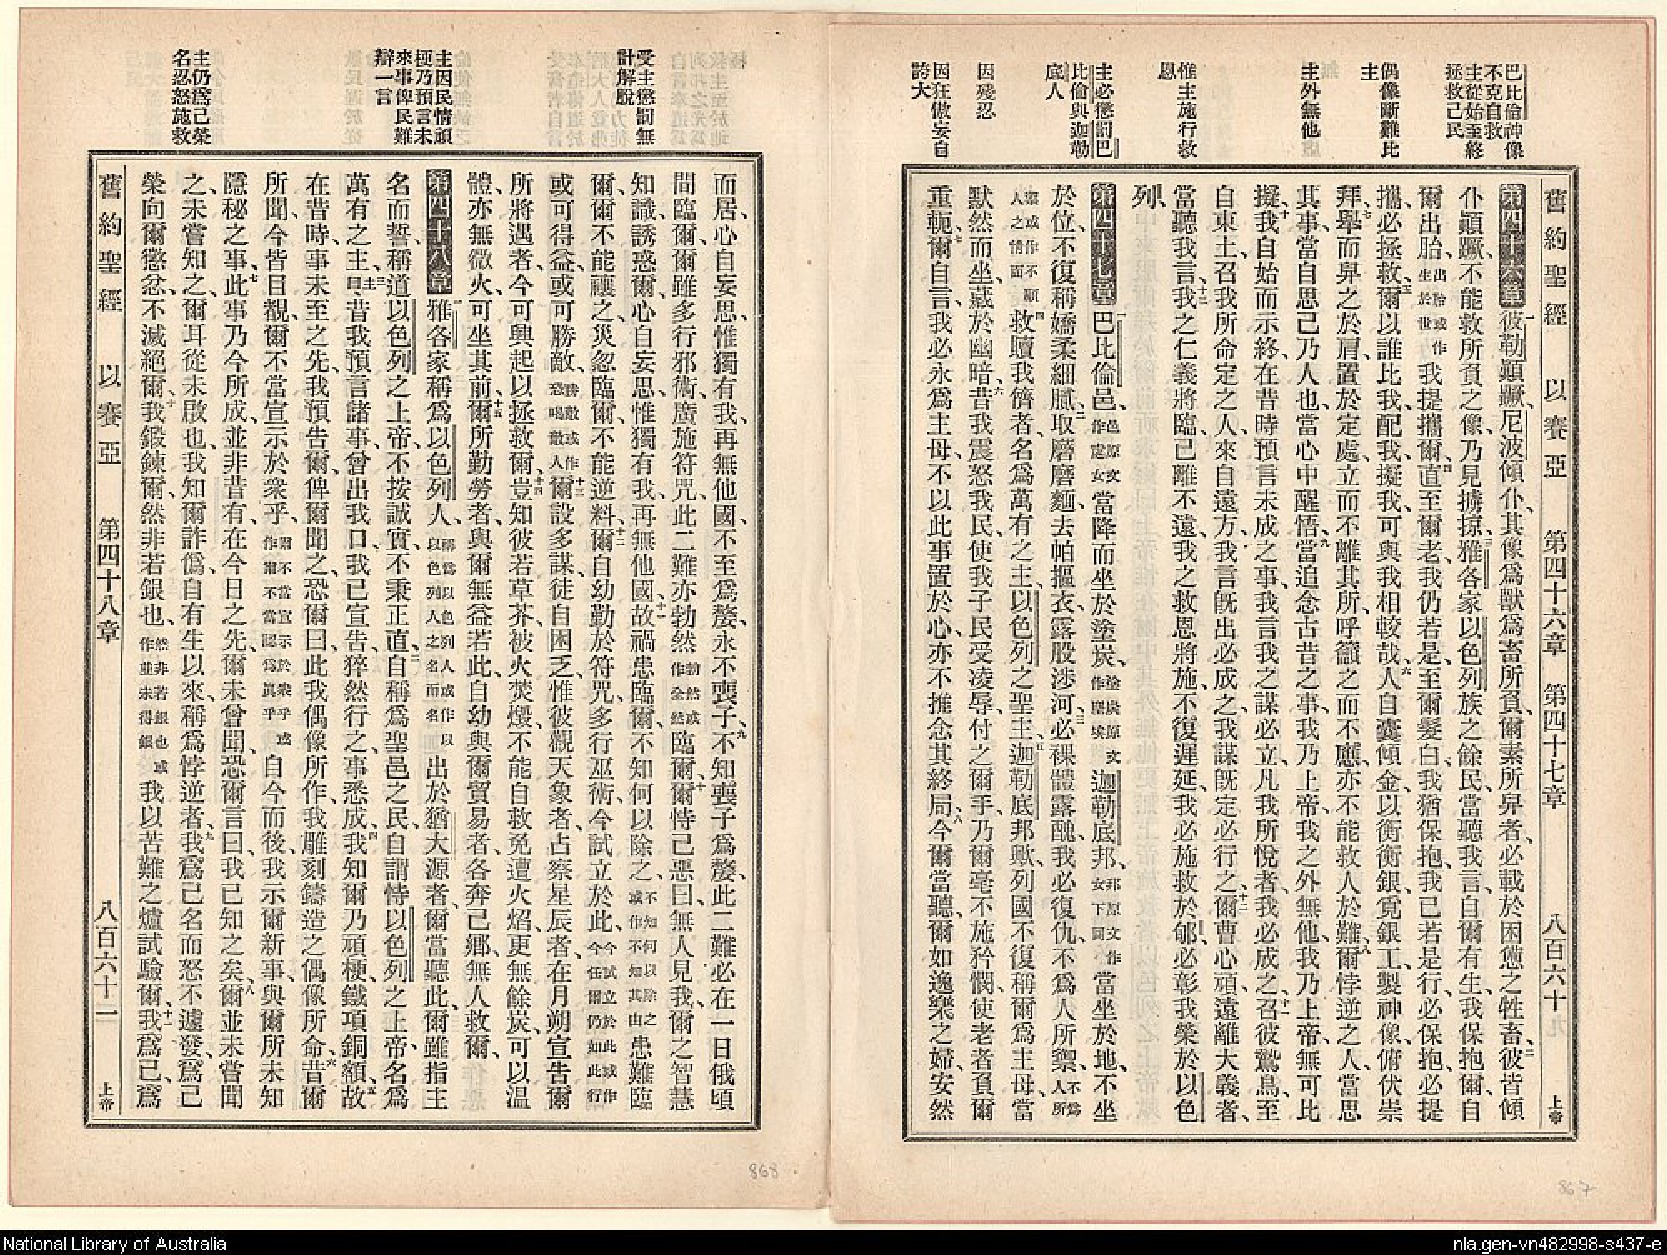 舊約聖經 以賽亞 第四十六章 第四十七章 八百六十 上帝
巴比倫神像
不克自救
主從始至終
拯救己民
偶像斷難比
主
主外無他
惟主施行救
恩
主必懲罰巴
比倫與迦勒
底人
因殘忍
因狂傲妄自
誇大
第四十六章 一彼勒顚蹶、尼波傾仆、其像爲獸爲畜所負、爾素所舁者、必載於困憊之牲畜、二彼皆傾
仆顚蹶、不能救所負之像、乃見擄掠、三雅各家以色列族之餘民、當聽我言、自爾有生、我保抱爾、自
爾出胎、出胎或作生於世我提攜爾、四直至爾老、我仍若是、至爾髮白、我猶保抱、我已若是行、必保抱、必提
攜、必拯救、五爾以誰比我、配我擬我、可與我相較哉、六人自囊傾金、以衡衡銀、覓銀工製神像、俯伏崇
拜、七舉而舁之於肩、置於定處、立而不離其所、呼籲之而不應、亦不能救人於難、八爾悖逆之人、當思
其事、當自思己乃人也、當心中醒悟、九當追念古昔之事、我乃上帝、我之外無他、我乃上帝、無可比
擬、十我自始而示終、在昔時預言未成之事、我言我之謀必立、凡我所悅者、我必成之、十一召彼鷙鳥至
自東土、召我所命定之人、來自遠方、我言旣出必成之、我謀旣定必行之、十二爾曹心頑、遠離大義者、
當聽我言、十三我之仁義將臨、已離不遠、我之救恩將施、不復遲延、我必施救於郇、必彰我榮於以色
列、
第四十七章 一巴比倫邑、邑原文作處女當降而坐於塗炭、塗炭原文作塵埃迦勒底邦、邦原文作女下同當坐於地、不坐
於位、不復稱嬌柔細膩、二取磨磨麵、去帕摳衣、露股涉河、三必裸體露醜、我必復仇、不爲人所禦、人不爲所
禦或作不顧人之情面四救贖我儕者、名爲萬有之主、以色列之聖主、五迦勒底邦歟、列國不復稱爾爲主母、當
默然而坐、藏於幽暗、六昔我震怒我民、使我子民受凌辱、付之爾手、乃爾毫不施矜憫、使老者負爾
重軛、七爾自言、我必永爲主母、不以此事置於心、亦不推念其終局、八今爾當聽、爾如逸樂之婦、安然
867
受主懲罰無
計解脫
主因民情頑
梗乃預言未
來事俾民難
辯一言
主仍爲己榮
名忍怒施救
而居、心自妄思、惟獨有我、再無他國、不至爲嫠、永不喪子、九不知喪子爲嫠、此二難必在一日俄頃
間臨爾、爾雖多行邪術、廣施符咒、此二難亦勃然勃然或作全然臨爾、十爾恃己惡曰、無人見我、爾之智慧
知識、誘惑爾心、自妄思、惟獨有我、再無他國、十一故禍患臨爾、不知何以除之、不知何以除之或作不知其由患難臨
爾、爾不能禳之、災忽臨爾、不能逆料、十二爾自幼勤於符咒、多行巫術、今試立於此、今試立於此或作今任爾仍如此行
或可得益、或可勝敵、勝敵或作恐嚇敵人十三爾設多謀、徒自困乏、惟彼觀天象者、占察星辰者、在月朔宣告爾
所將遇者、今可興起以拯救爾、十四豈知彼若草芥、被火焚燬、不能自救免遭火焰、更無餘炭、可以溫
體、亦無微火、可坐其前、十五爾所勤勞者、與爾無益若此、自幼與爾貿易者、各奔己鄉、無人救爾、
第四十八章 一雅各家稱爲以色列人、稱爲以色列人或作以以色列人之名而名出於猶大源者、爾當聽此、爾雖指主
名而誓、稱道以色列之上帝、不按誠實、不秉正直、二自稱爲聖邑之民、自謂恃以色列之上帝、名爲
萬有之主、三主曰、昔我預言諸事、曾出我口、我已宣告、猝然行之、事悉成、四我知爾乃頑梗、鐵項銅額、五故
在昔時、事未至之先、我預告爾、俾爾聞之、恐爾曰、此我偶像所作、我雕刻鑄造之偶像所命、六昔爾
所聞、今皆目覩、爾不當宣示於衆乎、爾不當宣示於衆乎或作爾不當認爲眞乎自今而後、我示爾新事、與爾所未知
隱秘之事、七此事乃今所成、並非昔有、在今日之先、爾未曾聞、恐爾言曰、我已知之矣、八爾並未嘗聞
之、未嘗知之、爾耳從未啟也、我知爾詐僞、自有生以來、稱爲悖逆者、九我爲己名而怒不遽發、爲己
榮向爾懲忿、不滅絕爾、十我鍛鍊爾、然非若銀也、然非若銀也或作並未得銀我以苦難之爐試驗爾、十一我爲己、爲
舊約聖經 以賽亞 第四十八章 八百六十二 上帝
868
National Library of Australia
nla.gen-vn482998-s437-e